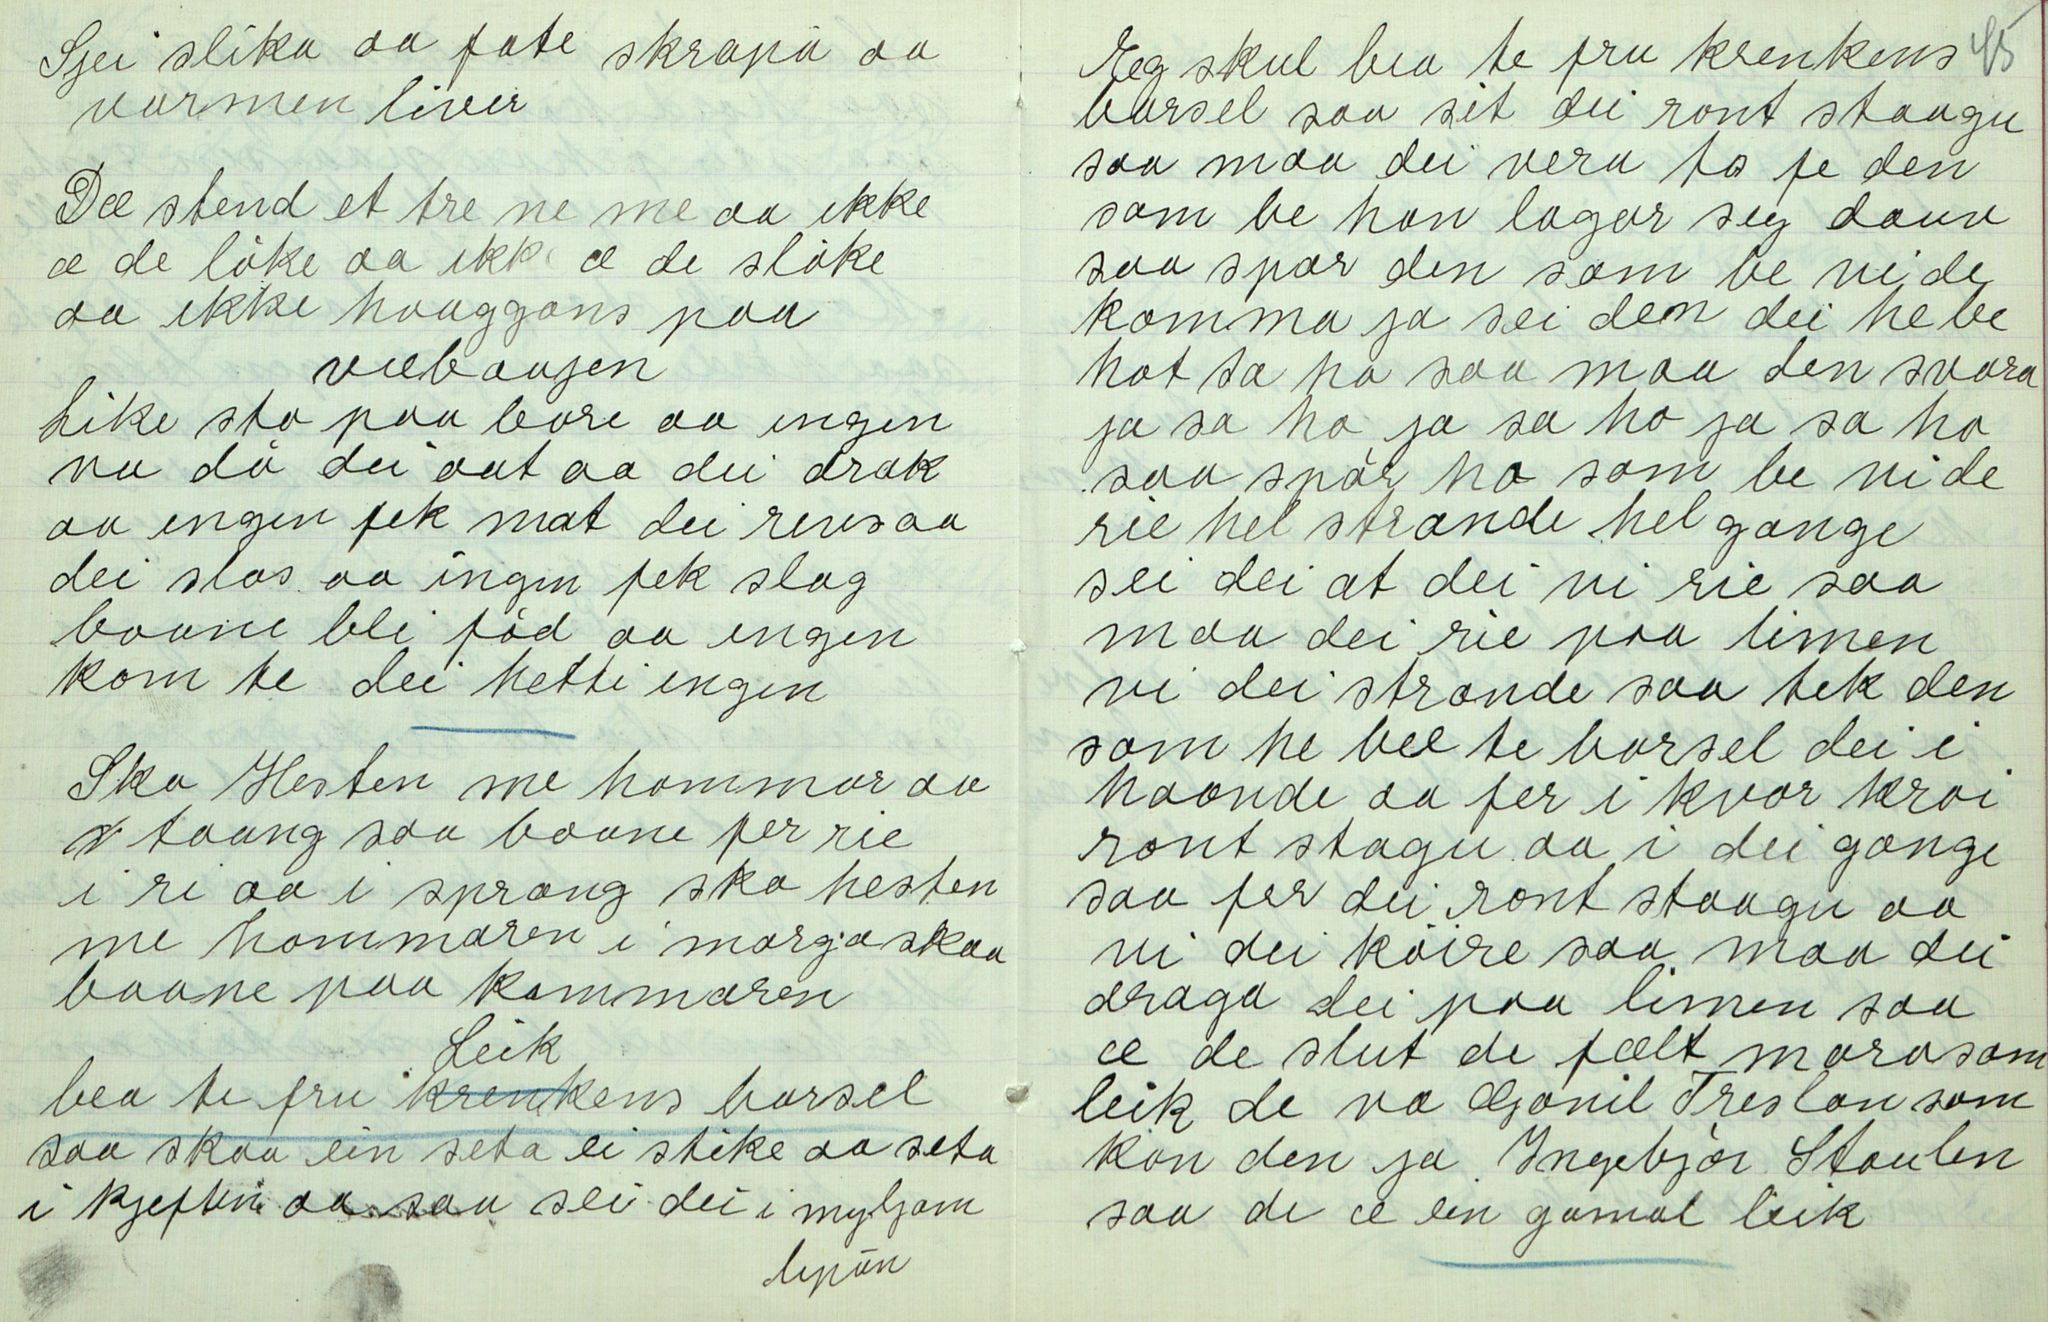 Sjei slika aa fate skrapa aa
varmen liver
Dæ stend et tre ne me aa ikke
æ de löke aa ikke æ de slöke
aa ikke haaggans paa
vælbaajen
Like sto paa bore aa ingen
va dö dei aat aa dei drak
aa ingen fek mat dei reiv saa
dei slos aa ingen fek slag
baane blei föd aa ingen
kom te dei hetti ingen
Sko Hesten me hommar aa
taang saa baane fer rie
i ri aa i sprang sko hesten
me hommaren i morgja skaa
baane paa kammaren
Leik
bea te fru krenkens barsel
saa skaa ein seta ei stike aa seta
i kjeften aa saa sei dei i myljom
lepån
Eg skul bea te fru krenkens 45
barsel saa sit dei ront staagu
saa maa dei vera to fe den
som be han lagar seg dauv
saa spør den som be vi de
komma ja sei dem dei he be
hot sa ho saa maa den svara
ja sa ho ja sa ho ja sa ho
saa spör ho som be vi de
rie hel strande hel gange
sei dei at dei vi rie saa
maa dei rie paa limen
vi dei strande saa tek den
som he bee te barsel dei i
haande aa fer i kvar kroi
ront stagu aa i dei gange
saa fer dei ront staagu aa
vi dei köire saa maa dei
draga dei paa limen saa
æ de slut de fælt morosom
leik de va Gonil Treslan som
kån den ja Ingebjør Staulen
saa de æ ein gamal leik